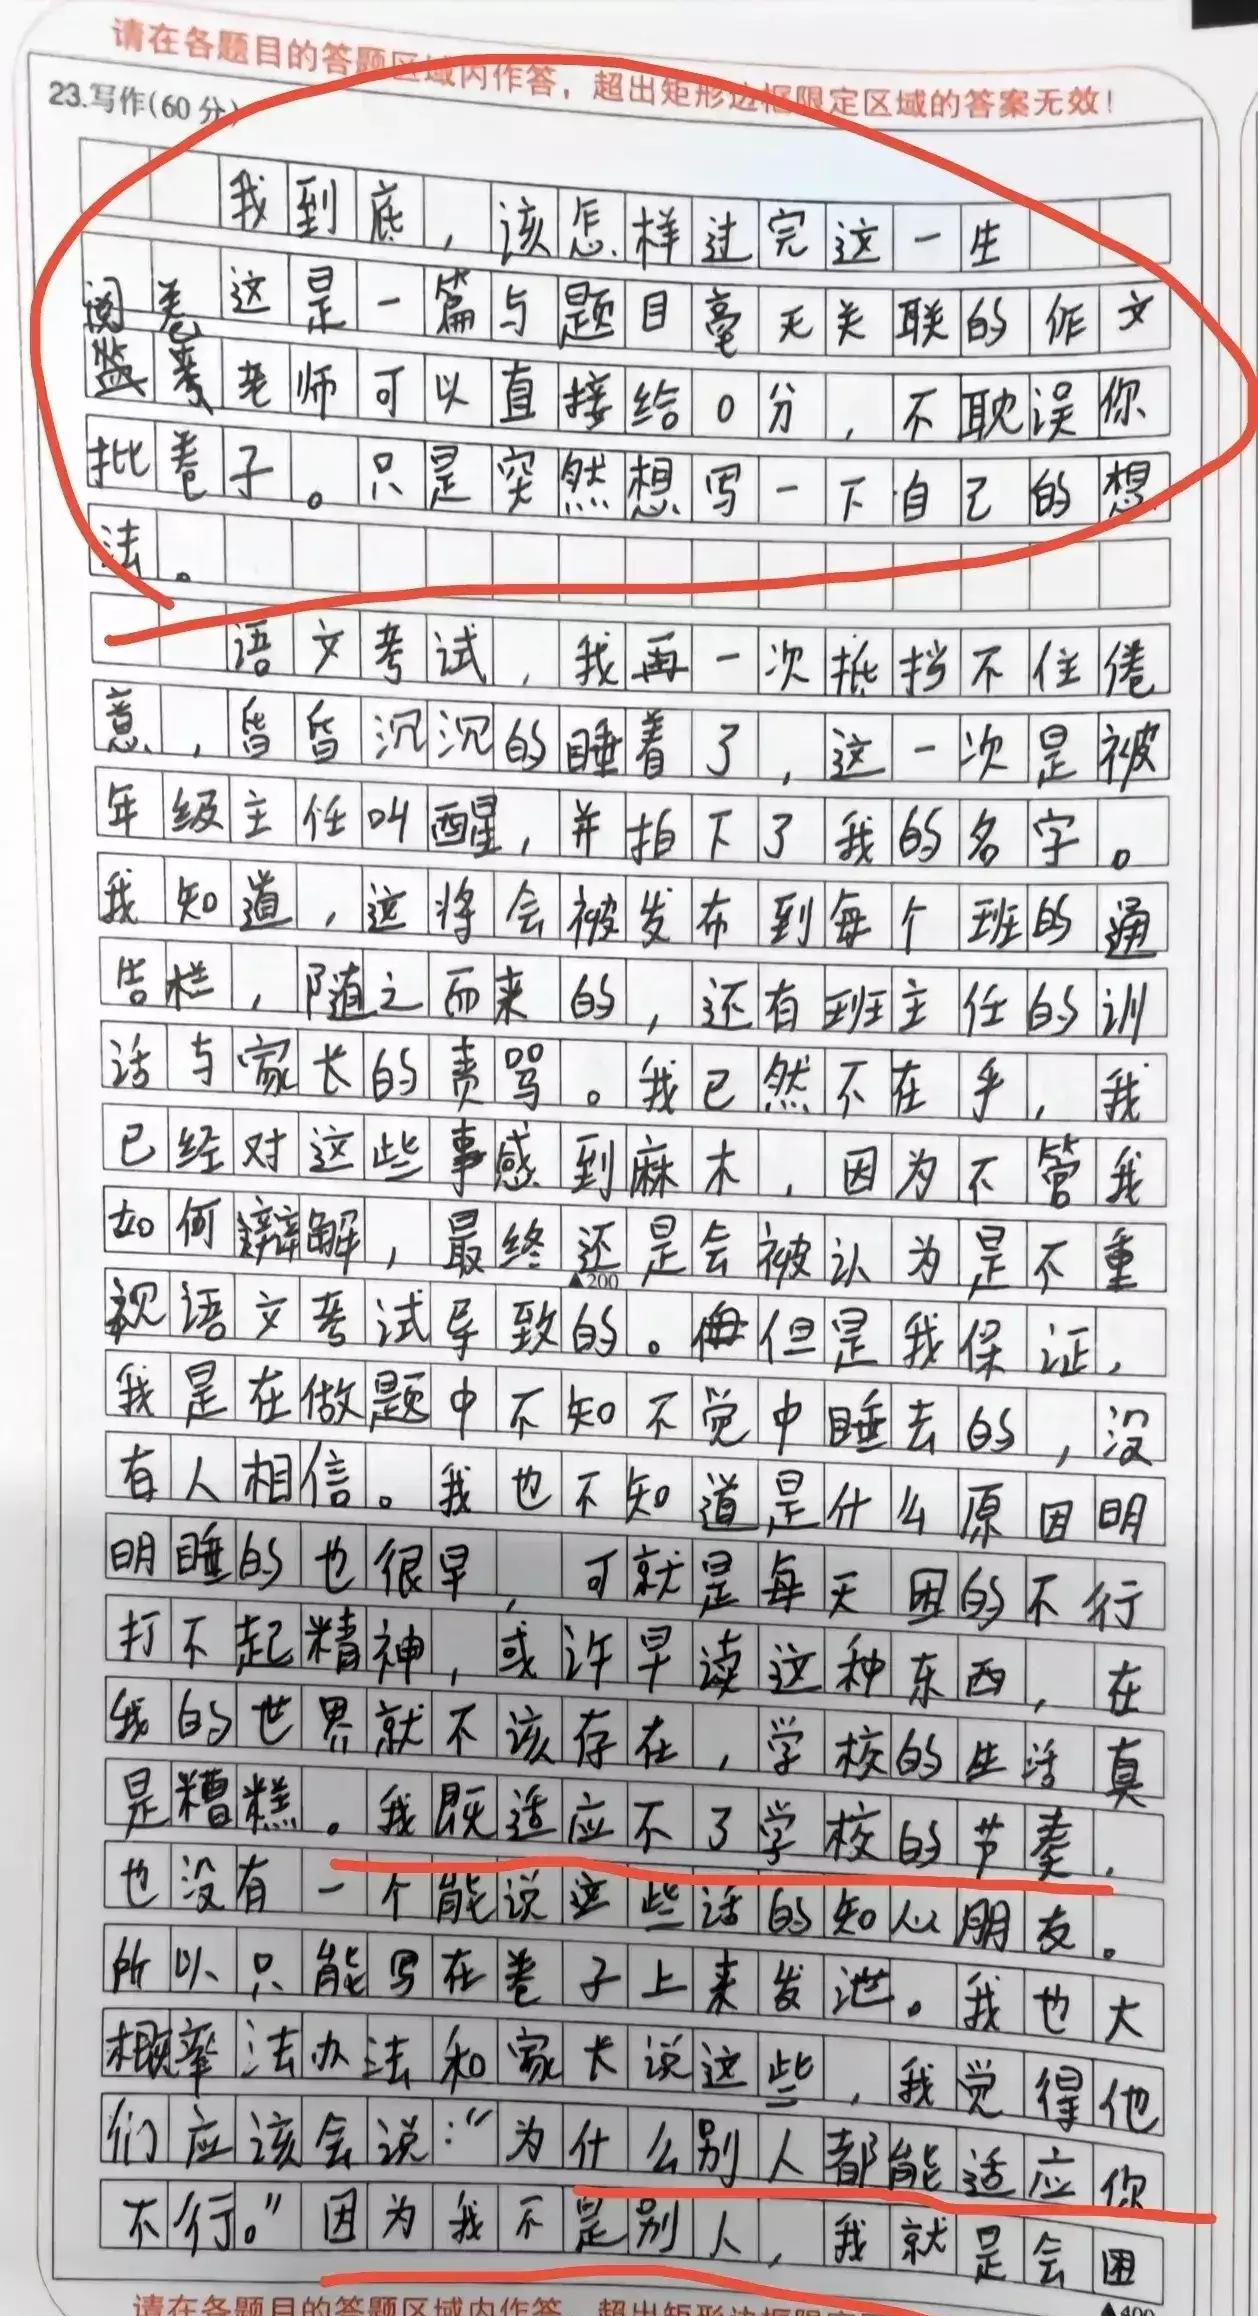 请在各题目的答题区域内作答，超出矩形边框限定区域的答案无效！
23.写作(60分)
我到底，该怎样过完这一生
这是一篇与题目毫无关联的作文
阅卷老师可以直接给0分，不耽误你
批卷子。只是突然想写一下自己的想
法。
语文考试，我再一次抵挡不住倦
意，昏昏沉沉的睡着了，这一次是被
年级主任叫醒，并拍下了我的名字。
我知道，这将会被发布到每个班的通
告栏，随之而来的，还有班主任的训
话与家长的责骂。我已然不在乎，我
已经对这些事感到麻木，因为不管我
如何辩解，最终还是会被认为是不重
▲200
视语文考试导致的。但是我保证，
我是在做题中不知不觉中睡去的，没
有人相信。我也不知道是什么原因明
明睡的也很早，可就是每天困的不行
打不起精神，或许早读这种东西，在
我的世界就不该存在，学校的生活真
是糟糕。我既适应不了学校的节奏，
也没有一个能说这些话的知心朋友。
所以只能写在卷子上来发泄。我也大
概率法办法和家长说这些，我觉得他
们应该会说：“为什么别人都能适应你
不行。”因为我不是别人，我就是会困
▲400
请在各题目的答题区域内作答，超出矩形边框限定区